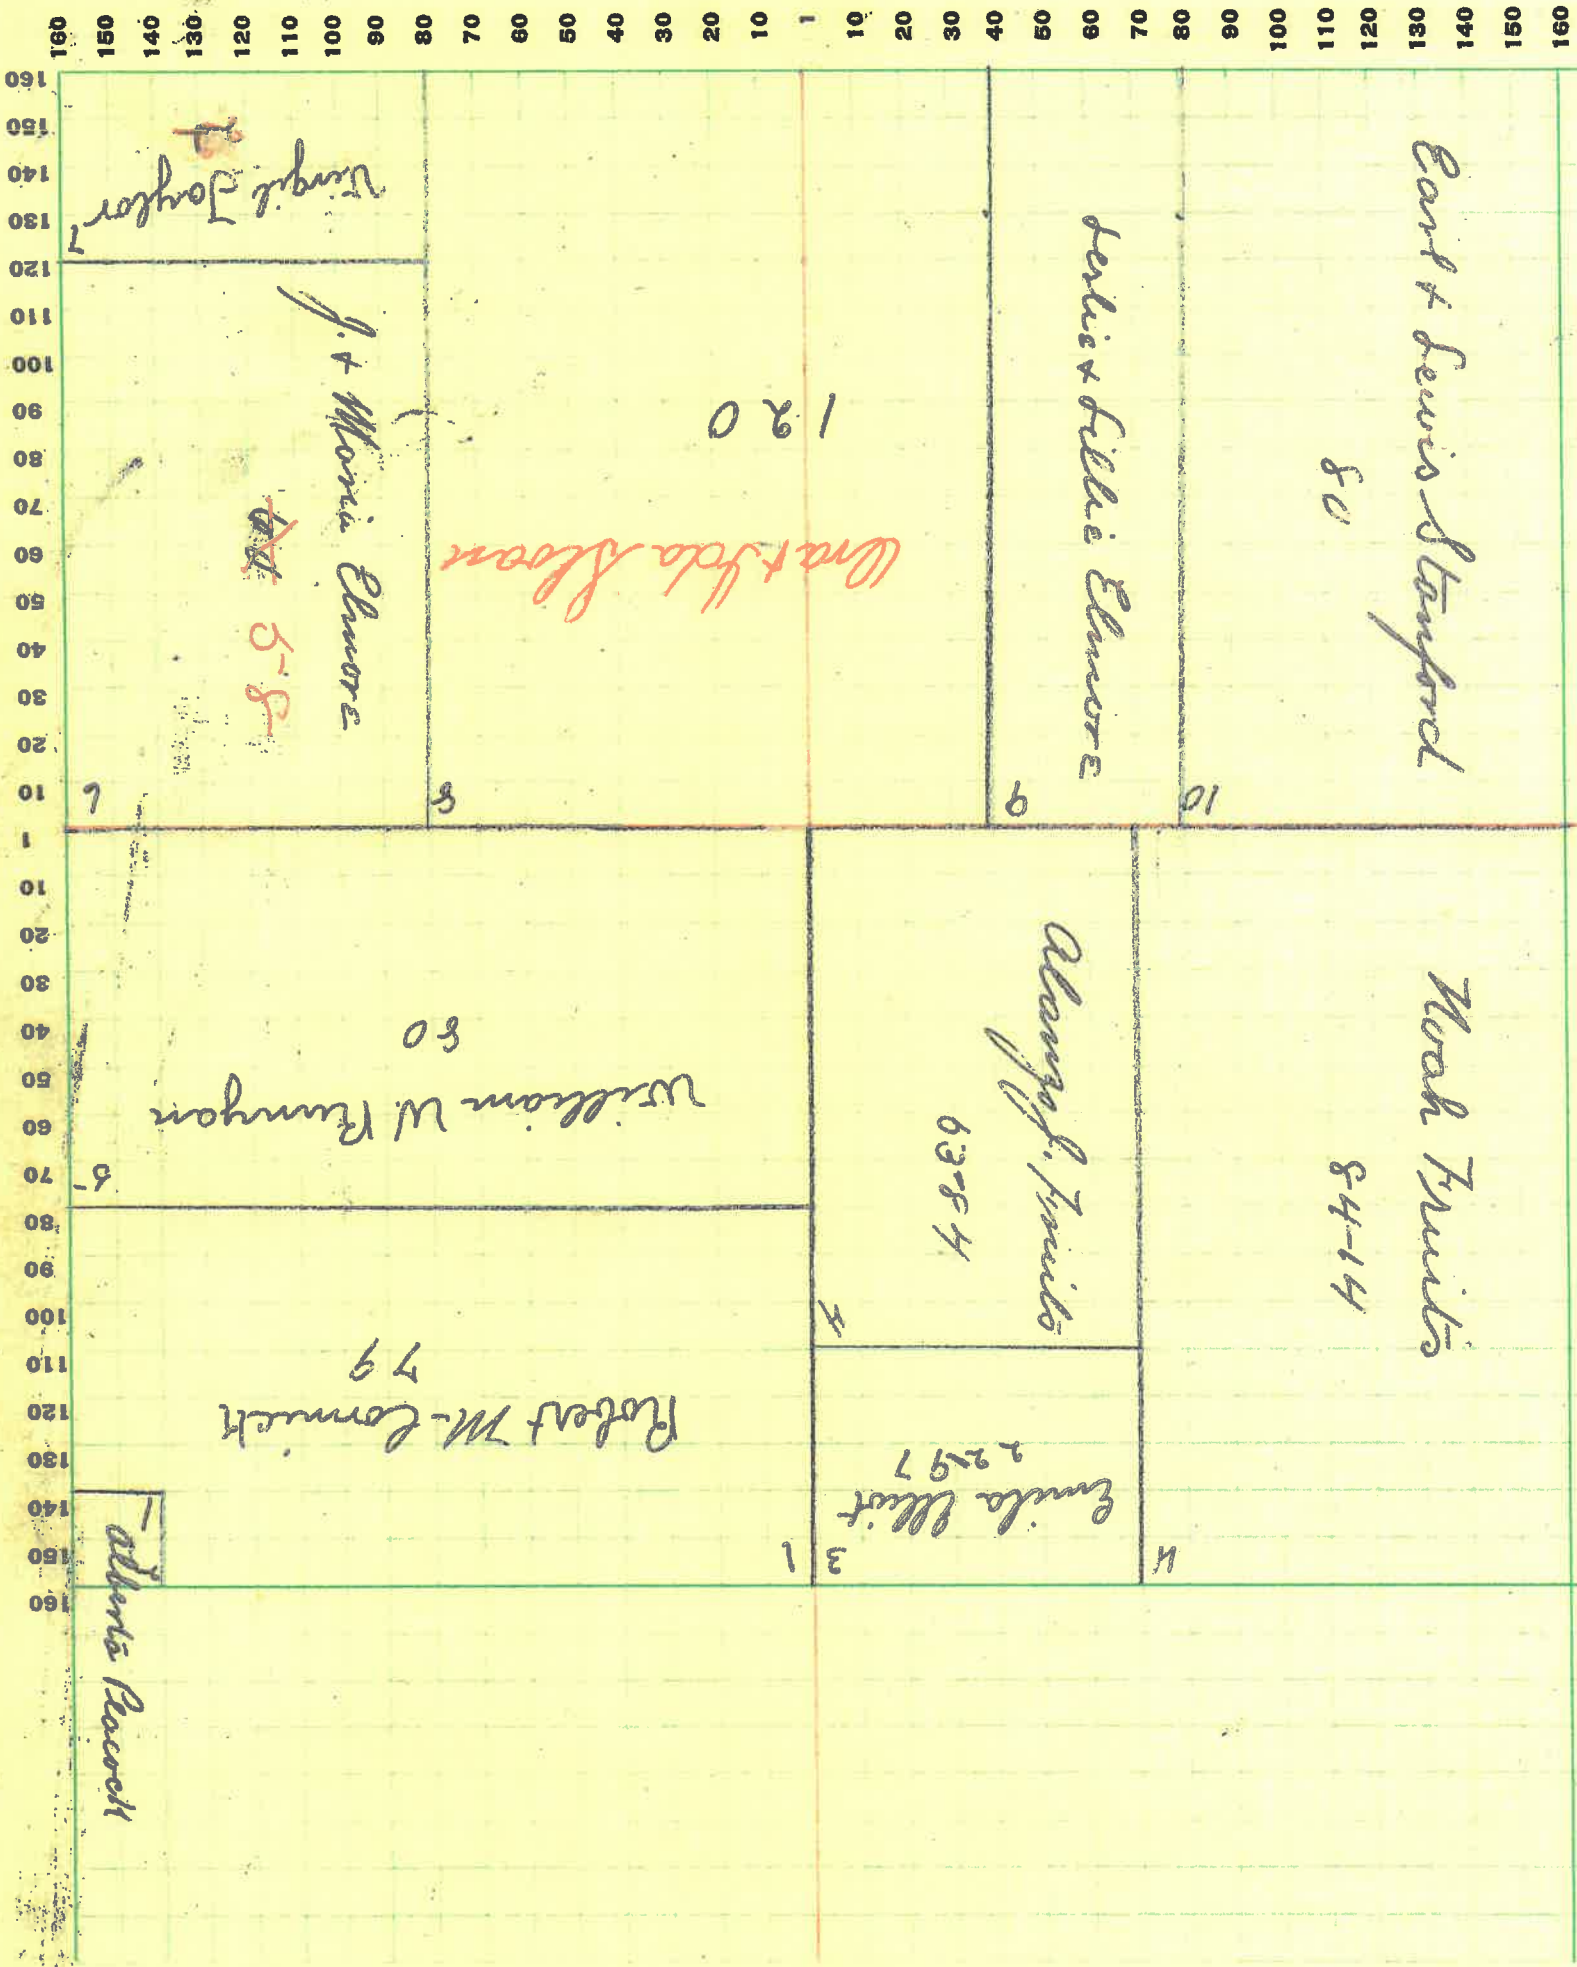 160 150 140 130 120 110 100 90 80 70 60 50 40 30 20 10 1 10 20 30 40 50 60 70 80 90 100 110 120 130 140 150 160
160
150
140
130
120
110
100
90
80
70
60
50
40
30
20
10
1
10
20
30
40
50
60
70
80
90
100
110
120
130
140
150
160
Virgil Taylor
7
J. + Monie Elmore
58
6
120
Ora + Ida Sloan
8
Leslie + Lillie Elmore
9
Earl + Lewis Stanford
80
10
William W. Runyan
80
5
Robert McCormick
79
1
Alberta Peacock
Alonzo J. Fruits
4
Emila Elliot
3
Noah Fruits
84-14
11